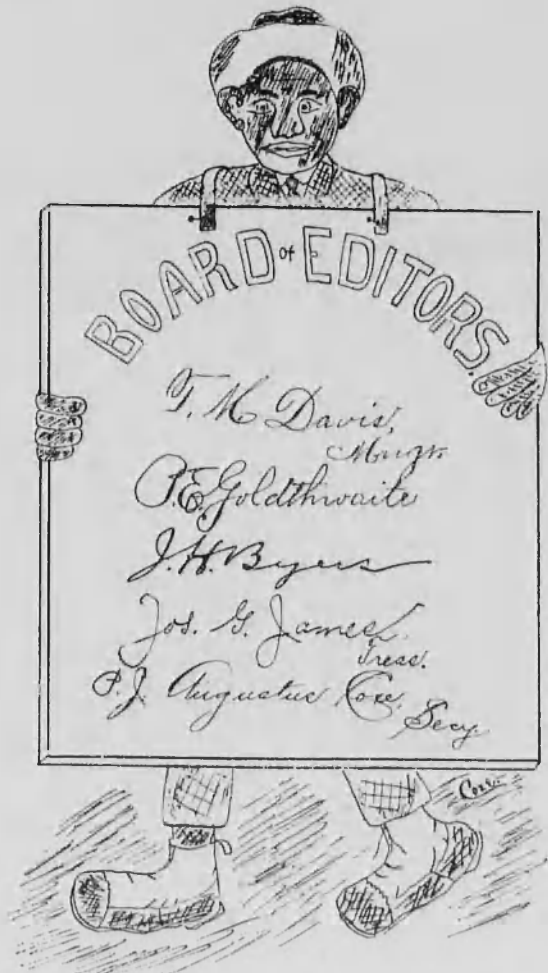 BOARD of EDITORS.
T. M. Davis,
Mangr.
P. E. Goldthwaite
J. H. Byers
Jos. G. James,
Treas.
P. J. Augustus Coxe,
Secy
Coxe.